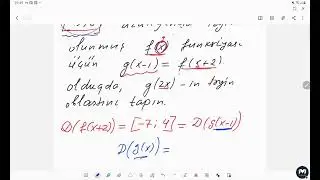 olunmuş f(x) funksiyası
üçün g(x-1) = f(x+2)
olduqda, g(2x) - in təyin
oblastını tapın.
D(f(x+2)) = [-7; 4] = D(g(x-1))
D(g(x)) =